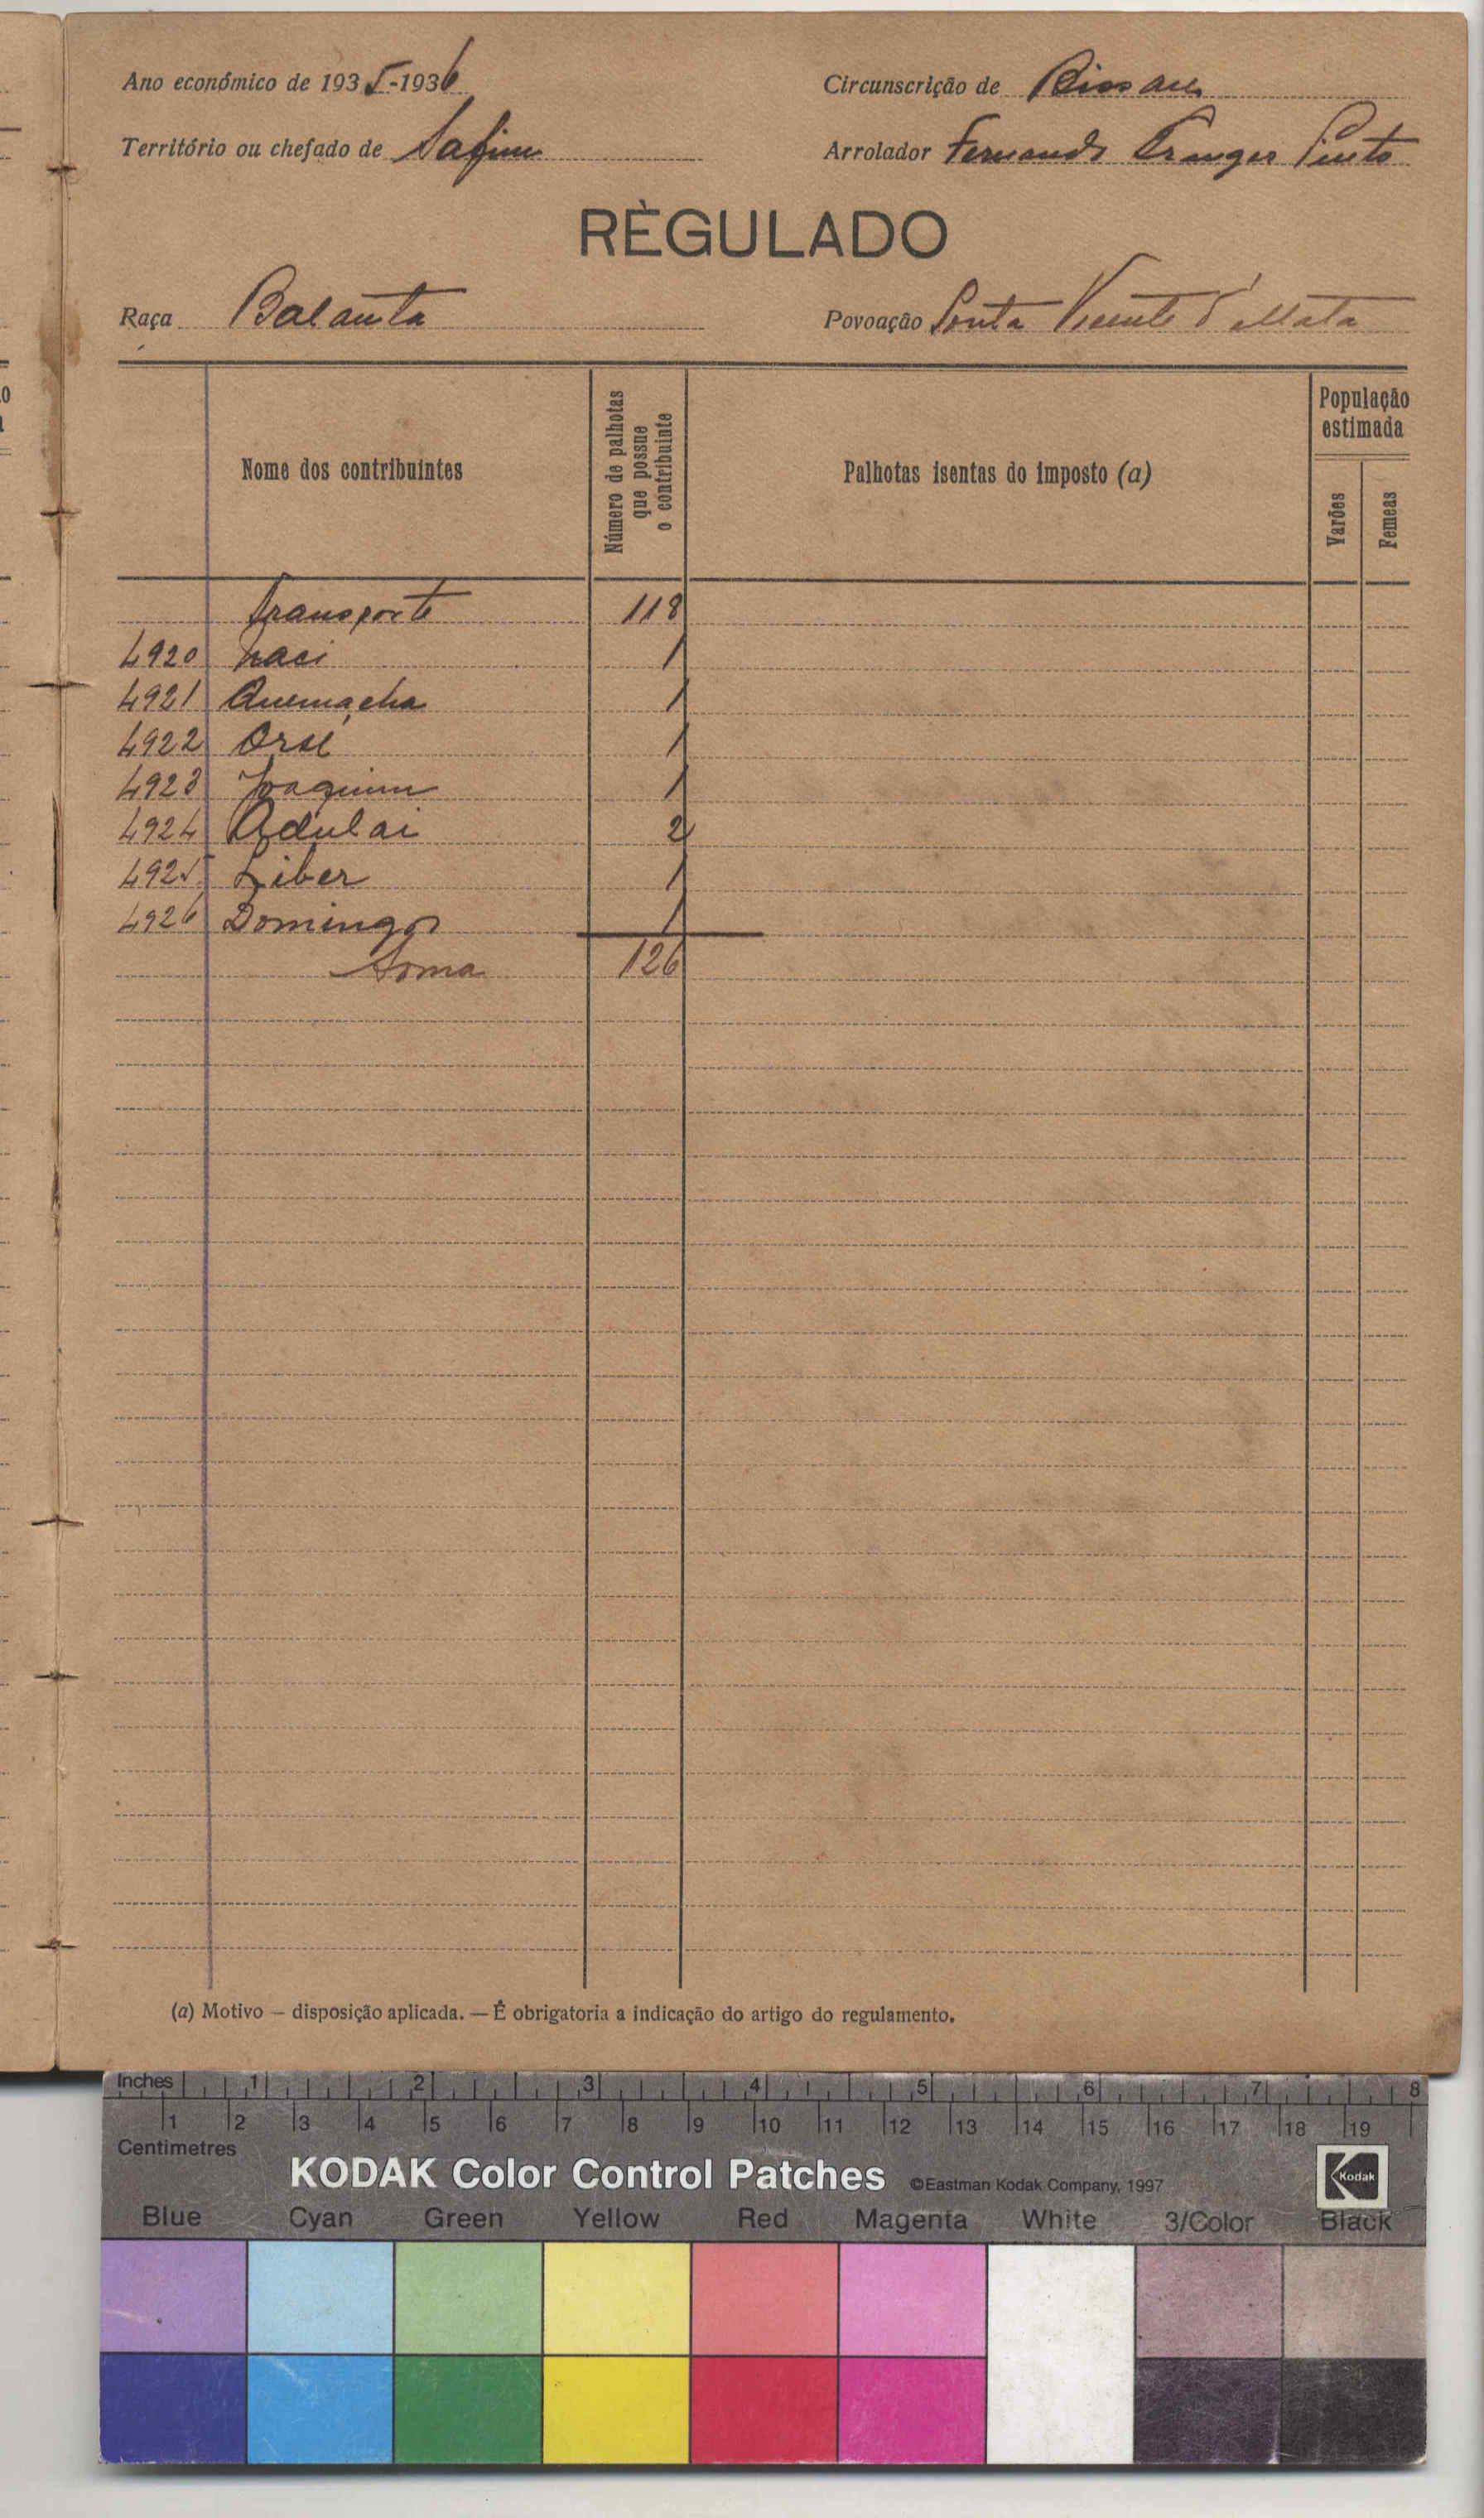 Ano económico de 1935-1936
Circunscrição de Bissau
Território ou chefado de Safim
Arrolador Fernando Pinto
RÈGULADO
Raça Balanta
Povoação Ponta Vicente d'Mata
Nome dos contribuintes
Número de palhotas
que possue
o contribuinte
Palhotas isentas do imposto (a)
População
estimada
Varões
Femeas
Transporte 118
4920 Naci 1
4921 Quemacha 1
4922 Orsé 1
4923 Joaquim 1
4924 Adulai 2
4925 Liber 1
4926 Domingos 1
Soma 126
(a) Motivo — disposição aplicada. — É obrigatoria a indicação do artigo do regulamento.
Inches 1 2 3 4 5 6 7 8
1 2 3 4 5 6 7 8 9 10 11 12 13 14 15 16 17 18 19
Centimetres
KODAK Color Control Patches ©Eastman Kodak Company, 1997 Kodak
Blue Cyan Green Yellow Red Magenta White 3/Color Black